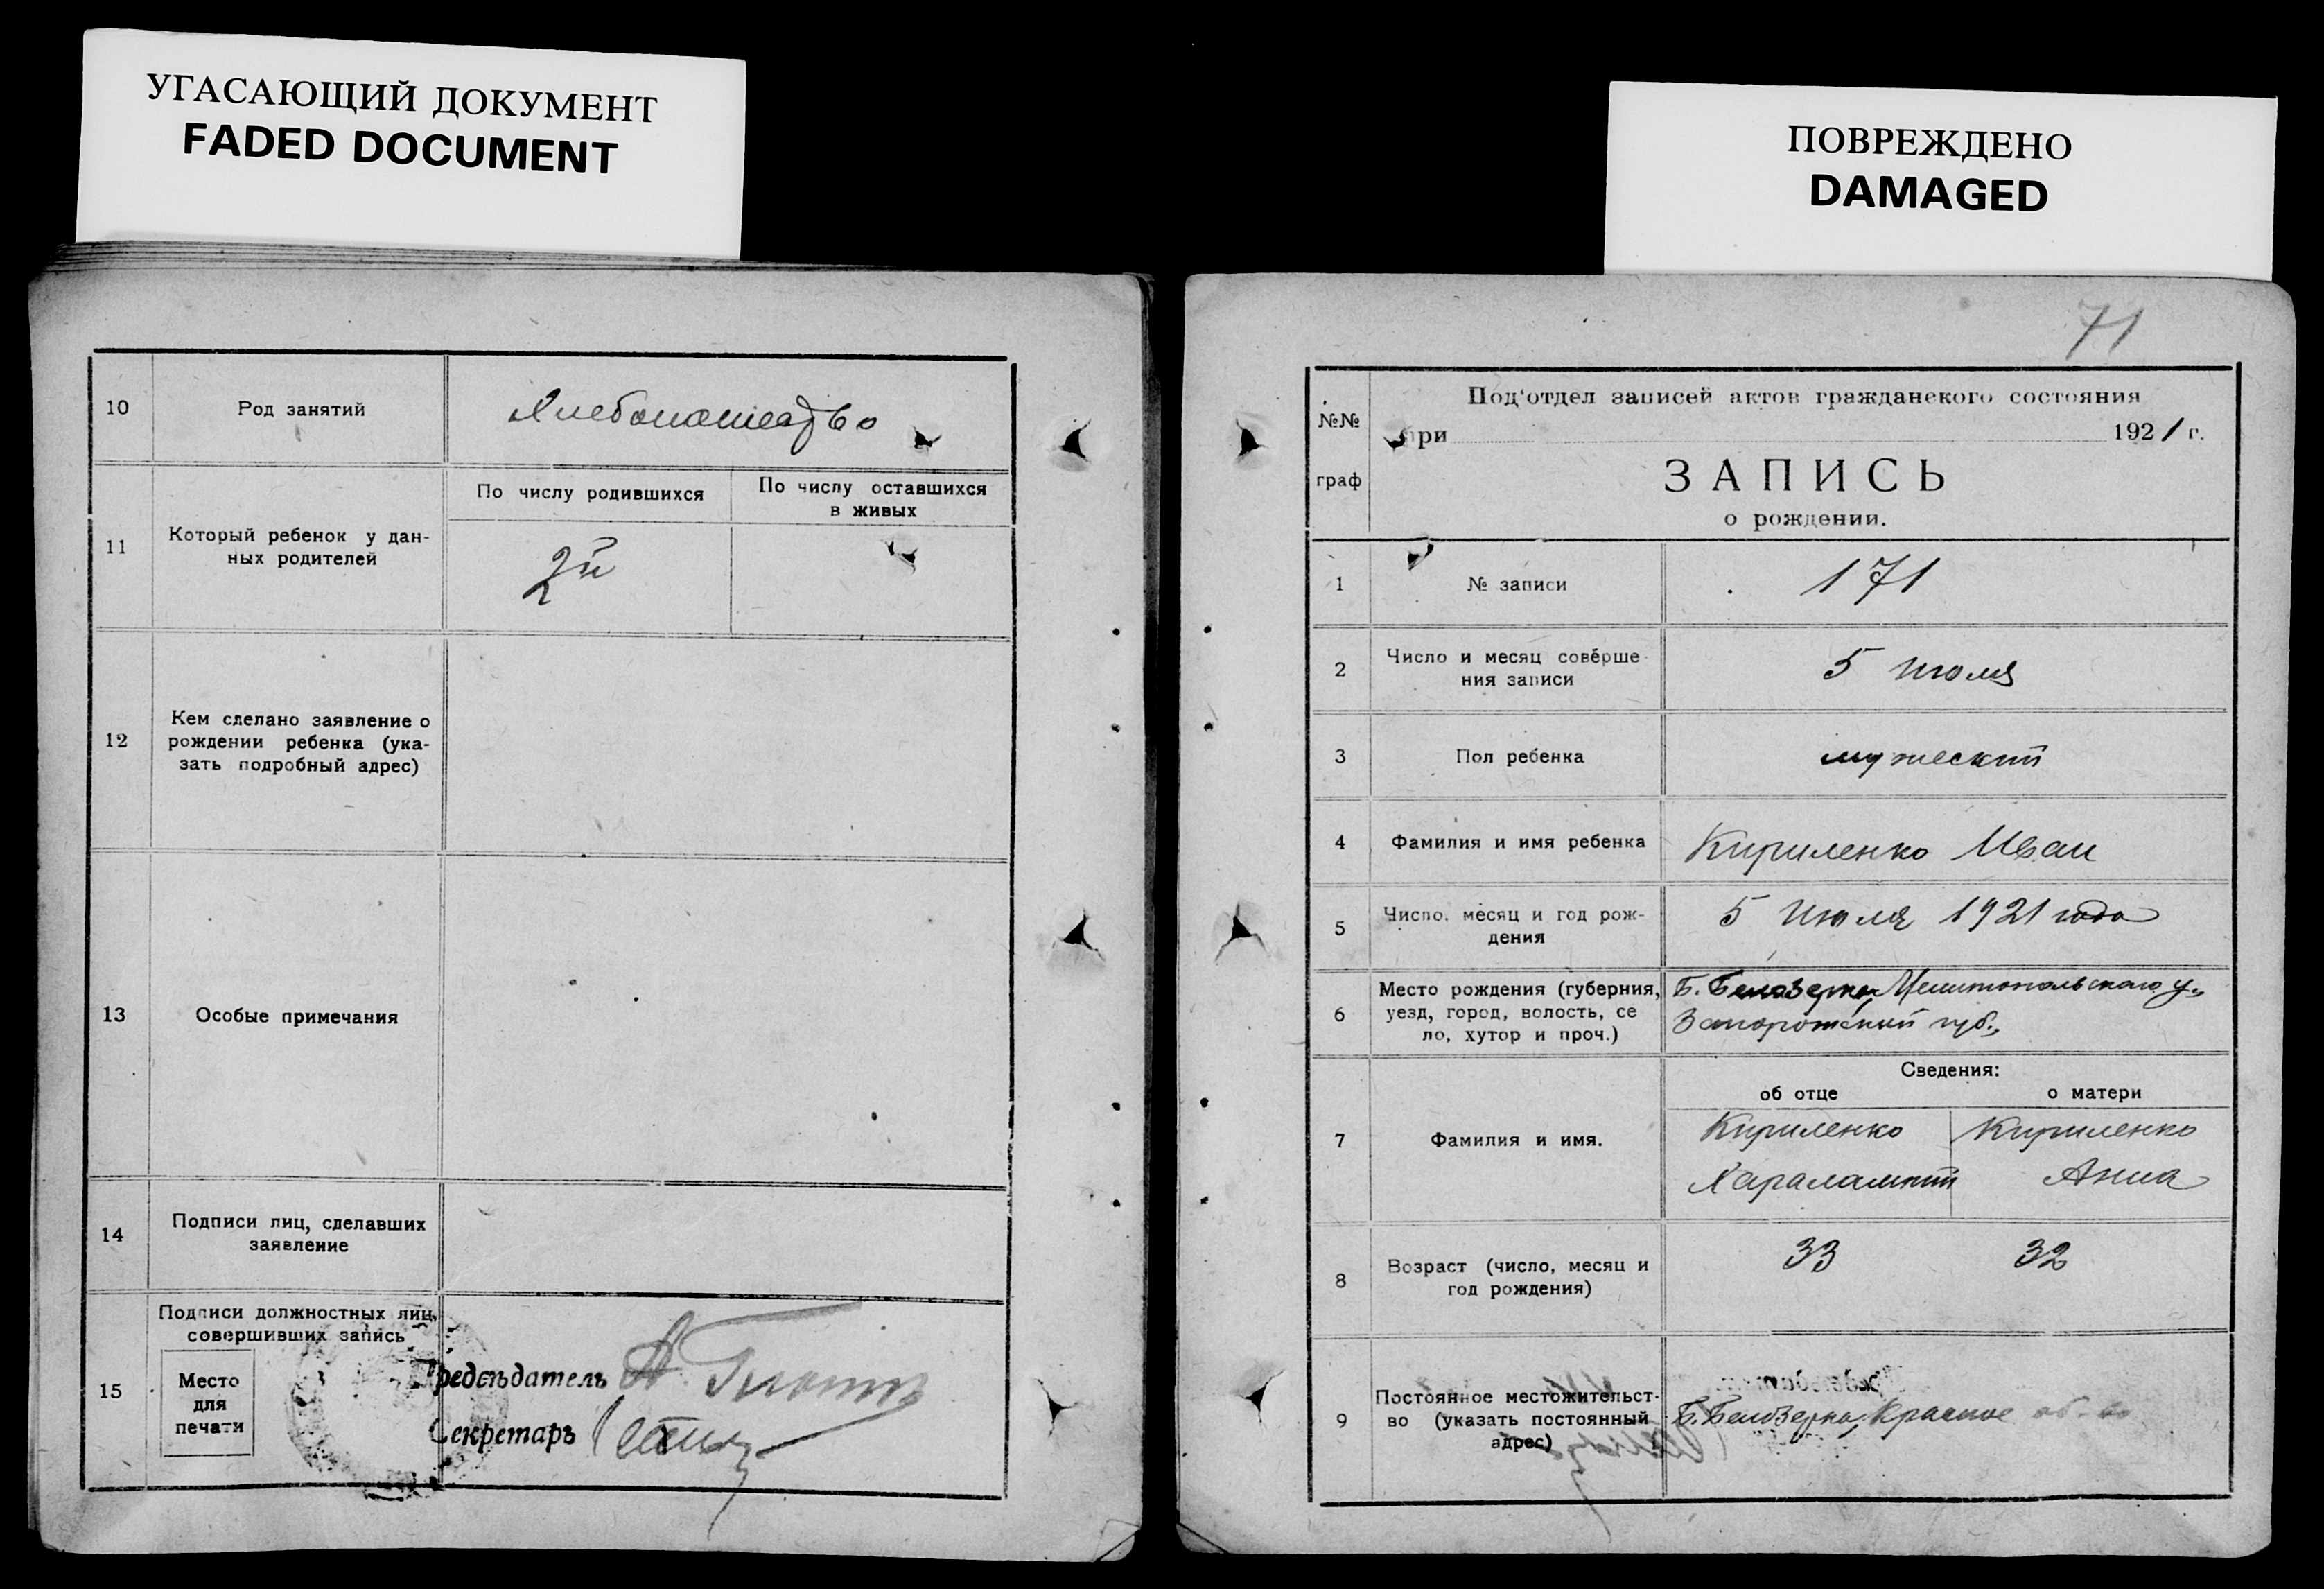 УГАСАЮЩИЙ ДОКУМЕНТ
FADED DOCUMENT
10
Род занятий
Хлебопашество
11
Который ребенок у дан-
ных родителей
По числу родившихся
По числу оставшихся
в живых
2й
12
Кем сделано заявление о
рождении ребенка (ука-
зать подробный адрес)
13
Особые примечания
14
Подписи лиц, сделавших
заявление
15
Подписи должностных лиц,
совершивших запись
Место
для
печати
Предсѣдатель
Секретарь
ПОВРЕЖДЕНО
DAMAGED
71
№№
граф
Под'отдел записей актов гражданского состояния
при 1921 г.
ЗАПИСЬ
о рождении.
1
№ записи
171
2
Число и месяц соверше-
ния записи
5 Июля
3
Пол ребенка
мужеский
4
Фамилия и имя ребенка
Кириленко Иван
5
Число, месяц и год рож-
дения
5 Июля 1921 года
6
Место рождения (губерния,
уезд, город, волость, се
ло, хутор и проч.)
Б. Белозерка, Мелитопольскаго у.,
Запорожский губ.,
Сведения:
об отце
о матери
7
Фамилия и имя.
Кириленко
Харалампий
Кириленко
Анна
8
Возраст (число, месяц и
год рождения)
33
32
9
Постоянное местожительст-
во (указать постоянный
адрес)
Б. Белозерка, Красное об-во